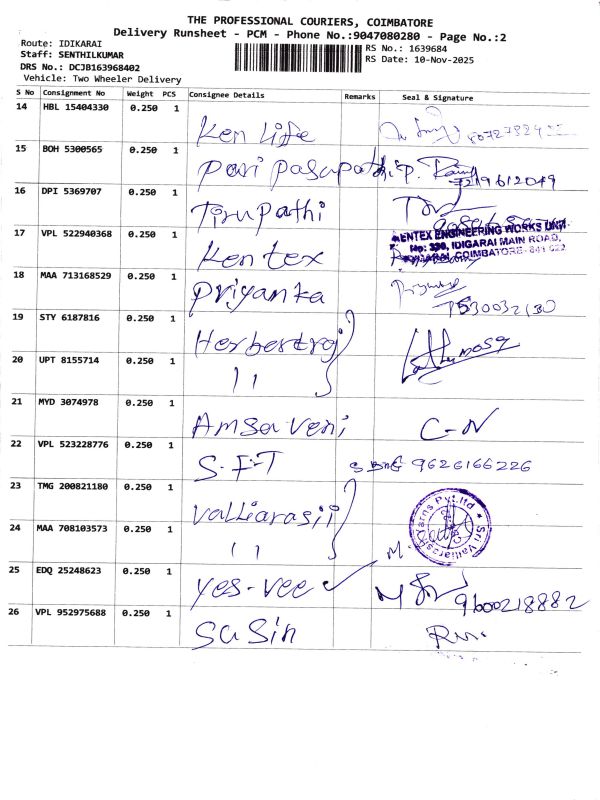 THE PROFESSIONAL COURIERS, COIMBATORE
Delivery Runsheet - PCM - Phone No.:9047080280 - Page No.:2
Route: IDIKARAI
RS No.: 1639684
Staff: SENTHILKUMAR
RS Date: 10-Nov-2025
DRS No.: DCJB163968402
Vehicle: Two Wheeler Delivery
S No Consignment No Weight PCS Consignee Details Remarks Seal & Signature
14 HBL 15404330 0.250 1 Ken life
15 BOH 5300565 0.250 1 Pari pasupathi P.
7219612049
16 DPI 5369707 0.250 1 Tirupathi
17 VPL 522940368 0.250 1 Kentex
KENTEX ENGINEERING WORKS UNIT
No: 330, IDIGARAI MAIN ROAD,
IDIGARAI, COIMBATORE- 641 022
18 MAA 713168529 0.250 1 Priyanka
7530032130
19 STY 6187816 0.250 1 Herbertroj
20 UPT 8155714 0.250 1 〃
21 MYD 3074978 0.250 1 Amsaveni C-N
22 VPL 523228776 0.250 1 S.F-T 9626166226
23 TMG 200821180 0.250 1 Valliarasii
Sri Valliarasi Yarns Pvt.ltd
24 MAA 708103573 0.250 1 〃 M.
25 EDQ 25248623 0.250 1 Yes-vee
9600218882
26 VPL 952975688 0.250 1 Sasin